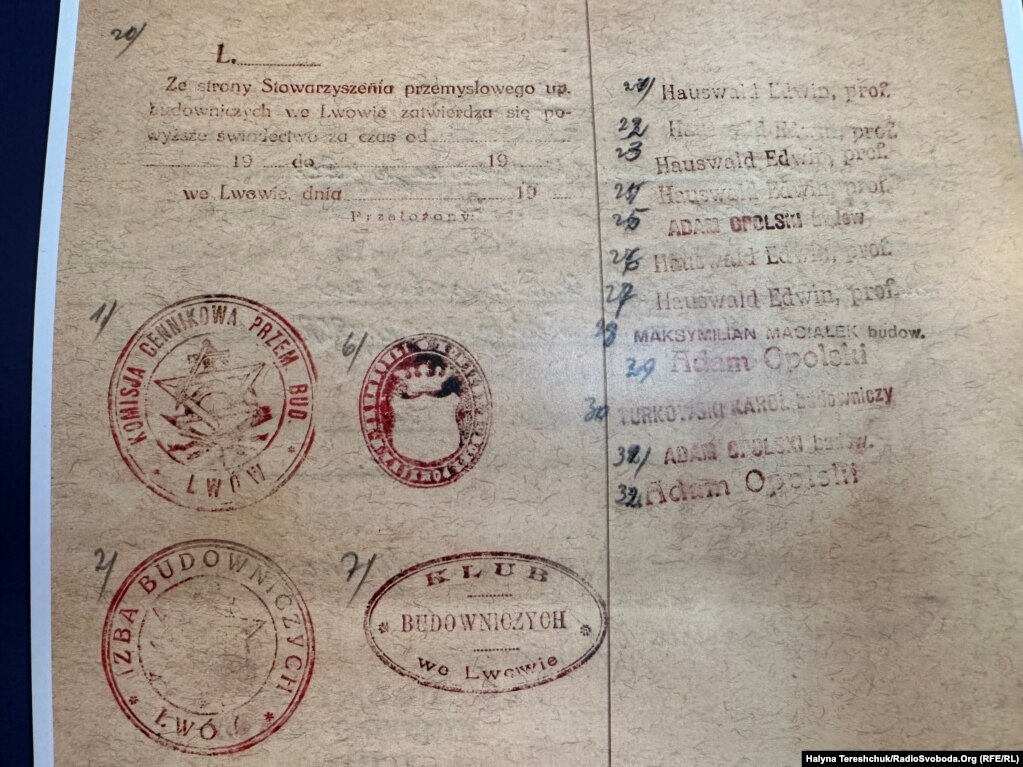 20/
L.
Ze strony Stowarzyszenia przemysłowego up.
budowniczych we Lwowie zatwierdza się po-
wyższe świadectwo za czas od
19 do 19
we Lwowie, dnia 19
Przełożony:
1/
KOMISJA CENNIKOWA PRZEM. BUD.
* LWÓW *
6/
2/
IZBA BUDOWNICZYCH
* LWÓ *
7/
KLUB
* BUDOWNICZYCH *
we Lwowie
21/ Hauswald Edwin, prof.
22 Hauswald Edwin, prof.
23 Hauswald Edwin, prof.
24 Hauswald Edwin, prof.
25 ADAM OPOLSKI budow.
26 Hauswald Edwin, prof.
27 Hauswald Edwin, prof.
28 MAKSYMILIAN MACIAŁEK budow.
29 Adam Opolski
30 TURKOWSKI KAROL budowniczy
31/ ADAM OPOLSKI budow.
32 Adam Opolski
Halyna Tereshchuk/RadioSvoboda.Org (RFE/RL)